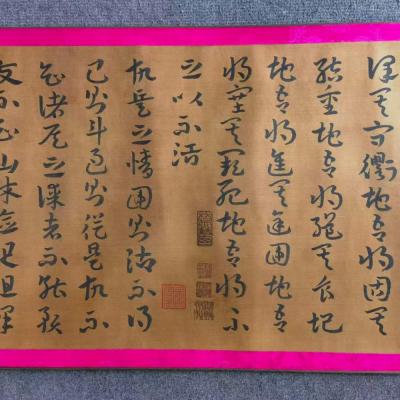 謹其守衢地吾將固其
結重地吾將繼其食圮
地吾將進其途圍地吾
將塞其闕死地吾將示
之以不活
故兵之情圍則禦不得
已則鬥過則從是故不
知諸侯之謀者不能預
交不知山林險阻沮澤